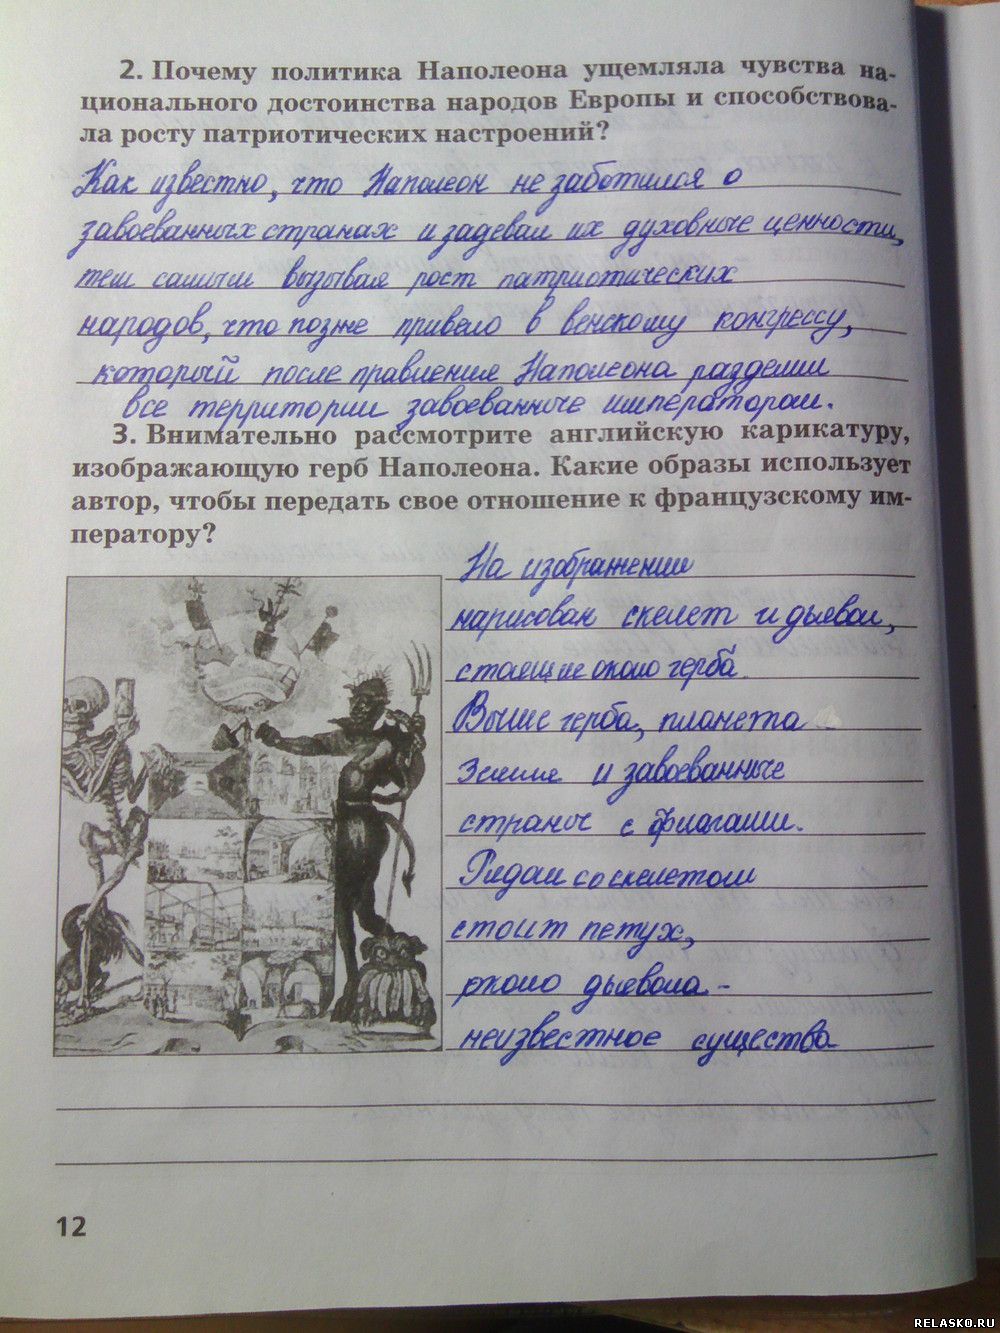 2. Почему политика Наполеона ущемляла чувства на-
ционального достоинства народов Европы и способствова-
ла росту патриотических настроений?
Как известно, что Наполеон не заботился о
завоеванных странах и задевал их духовные ценности,
тем самым вызывая рост патриотических
народов, что позже привело в венскому конгрессу,
который после правления Наполеона разделил
все территории завоеванные императором.
3. Внимательно рассмотрите английскую карикатуру,
изображающую герб Наполеона. Какие образы использует
автор, чтобы передать свое отношение к французскому им-
ператору?
На изображении
нарисован скелет и дьявол,
стоящие около герба.
Выше герба, планета
Земля и завоеванные
страны с флагами.
Рядом со скелетом
стоит петух,
около дьявола -
неизвестное существо
12
RELASKO.RU